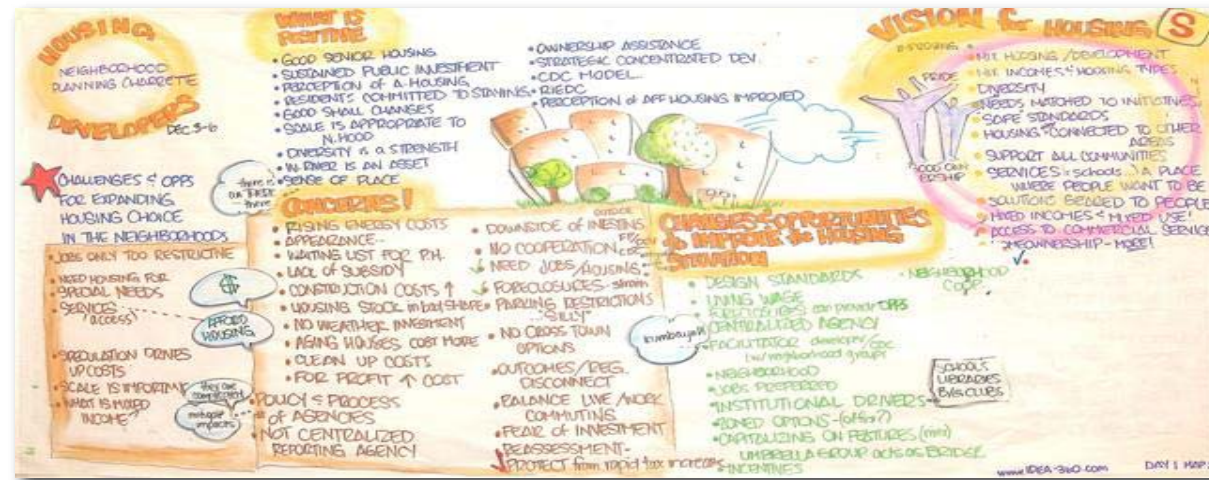 HOUSING
NEIGHBORHOOD
PLANNING CHARRETTE
DEVELOPERS
DEC. 3-6
CHALLENGES & OPPS
FOR EXPANDING
HOUSING CHOICE
IN THE NEIGHBORHOODS
• JOBS ONLY TOO RESTRICTIVE
• NEED HOUSING FOR
• SPECIAL NEEDS
• SERVICES
access
• SPECULATION DRIVES
UP COSTS
• SCALE IS IMPORTANT
• WHAT IS MIXED
INCOME?
WHAT IS
POSITIVE
• GOOD SENIOR HOUSING
• SUSTAINED PUBLIC INVESTMENT
• PERCEPTION of A-HOUSING
• RESIDENTS COMMITTED TO STAYING
• GOOD SMALL CHANGES
• SCALE IS APPROPRIATE TO
N.HOOD
• DIVERSITY is a STRENGTH
• W-RIVER IS AN ASSET
• SENSE OF PLACE
• OWNERSHIP ASSISTANCE
• STRATEGIC CONCENTRATED DEV.
• CDC MODEL
• RIEDC
• PERCEPTION of AFF HOUSING IMPROVED
there is
there
$
AFFORD
HOUSING
they are
impacts
CONCERNS!
• RISING ENERGY COSTS
• APPEARANCE..
• WAITING LIST FOR P.H.
• LACK OF SUBSIDY
• CONSTRUCTION COSTS ↑
• HOUSING STOCK in bad SHAPE
• NO WEATHER INVESTMENT
• AGING HOUSES COST MORE
• CLEAN UP COSTS
• FOR PROFIT ↑ COST
• POLICY & PROCESS
of AGENCIES
• NOT CENTRALIZED
REPORTING AGENCY
OUTSIDE
• DOWNSIDE OF INVESTING
• NO COOPERATION
• NEED JOBS/HOUSING
• FORECLOSURES - strain
• PARKING RESTRICTIONS
"SILLY"
• NO CROSS TOWN
OPTIONS
• OUTCOMES/REG.
DISCONNECT
• BALANCE LIVE/WORK
COMMUTING
• FEAR of INVESTMENT
• REASSESSMENT-
PROTECT from rapid tax increases
CHANGES & OPPORTUNITIES
to IMPROVE the HOUSING
SITUATION
• DESIGN STANDARDS
• LIVING WAGE
• FORECLOSURES can provide OPPS
• CENTRALIZED AGENCY
• FACILITATOR developer/CDC
(w/neighborhood groups)
• NEIGHBORHOOD
• JOBS PREFERRED
• INSTITUTIONAL DRIVERS
• ZONED OPTIONS-(offer?)
• CAPITALIZING ON FEATURES
UMBRELLA GROUP acts as BRIDGE
• INCENTIVES
• NEIGHBORHOOD
COOP.
kumbayah
SCHOOLS
LIBRARIES
B/G CLUBS
VISION for HOUSING S
PRIDE
GOOD OWN
ERSHIP
• MIX HOUSING/DEVELOPMENT
• MIX INCOMES & HOUSING TYPES
• DIVERSITY
• NEEDS MATCHED TO INITIATIVES
• SAFE STANDARDS
• HOUSING CONNECTED TO OTHER
AREAS
• SUPPORT ALL COMMUNITIES
• SERVICES = schools...! A PLACE
WHERE PEOPLE WANT TO BE
• SOLUTIONS GEARED TO PEOPLE
• MIXED INCOMES & MIXED USE!
• ACCESS TO COMMERCIAL SERVICE
• HOMEOWNERSHIP - MORE!
www.IDEA-360.com
DAY 1 MAP